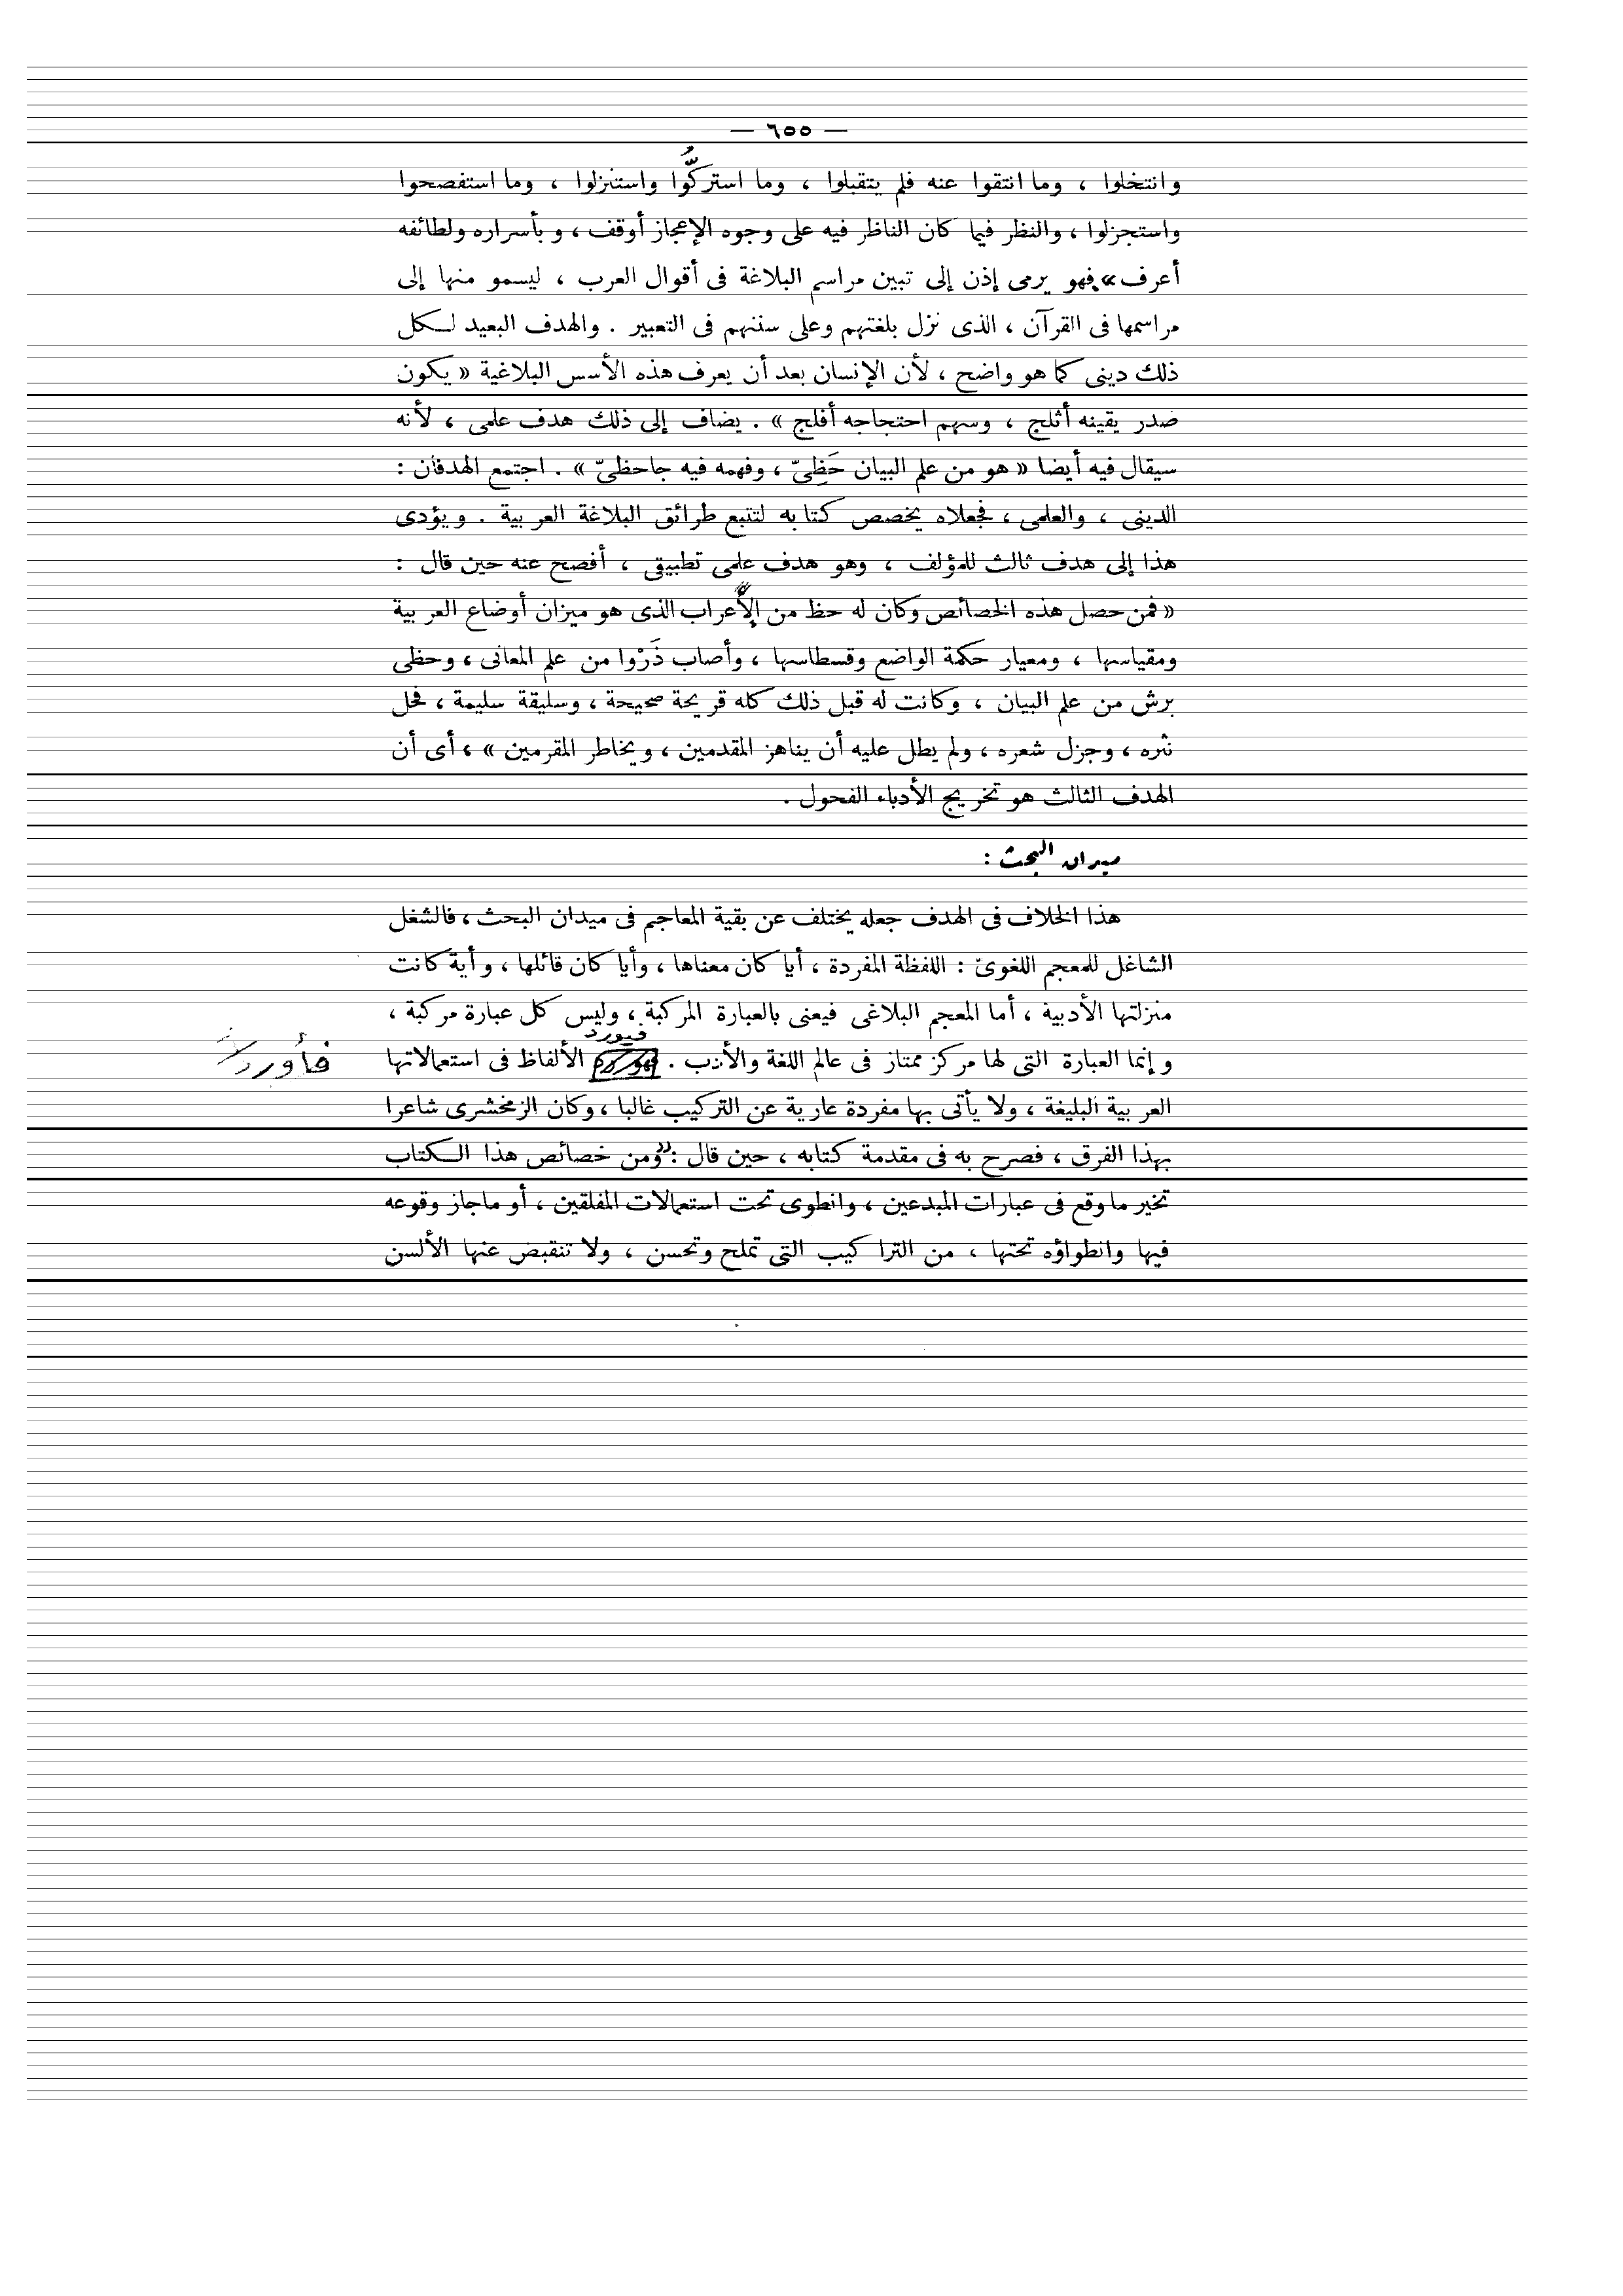 — ٦٥٥ —
وانتخلوا ، وما انتقوا عنه فلم يتقبلوا ، وما استركّوا واستنزلوا ، وما استفصحوا
واستجزلوا ، والنظر فيما كان الناظر فيه على وجوه الإعجاز أوقف ، وبأسراره ولطائفه
أعرف » . فهو يرمى إذن إلى تبين مراسم البلاغة فى أقوال العرب ، ليسمو منها إلى
مراسمها فى القرآن ، الذى نزل بلغتهم وعلى سننهم فى التعبير . والهدف البعيد لكل
ذلك دينى كما هو واضح ، لأن الإنسان بعد أن يعرف هذه الأسس البلاغية « يكون
صدر يقينه أثلج ، وسهم احتجاجه أفلج » . يضاف إلى ذلك هدف علمى ، لأنه
سيقال فيه أيضا « هو من علم البيان حَظِىّ ، وفهمه فيه جاحظىّ » . اجتمع الهدفان :
الدينى ، والعلمى ، فجعلاه يخصص كتابه لتتبع طرائق البلاغة العربية . ويؤدى
هذا إلى هدف ثالث للمؤلف ، وهو هدف علمى تطبيقى ، أفصح عنه حين قال :
« فمن حصل هذه الخصائص وكان له حظ من الإعراب الذى هو ميزان أوضاع العربية
ومقياسها ، ومعيار حكمة الواضع وقسطاسها ، وأصاب ذَرْوا من علم المعانى ، وحظى
برش من علم البيان ، وكانت له قبل ذلك كله قريحة صحيحة ، وسليقة سليمة ، فحل
نثره ، وجزل شعره ، ولم يطل عليه أن يناهز المقدمين ، ويخاطر المقرمين » ، أى أن
الهدف الثالث هو تخريج الأدباء الفحول .
ميدان البحث :
هذا الخلاف فى الهدف جعله يختلف عن بقية المعاجم فى ميدان البحث ، فالشغل
الشاغل للمعجم اللغوىّ : اللفظة المفردة ، أيا كان معناها ، وأيا كان قائلها ، وأية كانت
منزلتها الأدبية ، أما المعجم البلاغى فيعنى بالعبارة المركبة ، وليس كل عبارة مركبة ،
وإنما العبارة التى لها مركز ممتاز فى عالم اللغة والأدب . فيورد الألفاظ فى استعمالاتها
فأورد
العربية البليغة ، ولا يأتى بها مفردة عارية عن التركيب غالبا ، وكان الزمخشرى شاعرا
بهذا الفرق ، فصرح به فى مقدمة كتابه ، حين قال : « ومن خصائص هذا الكتاب
تخير ما وقع فى عبارات المبدعين ، وانطوى تحت استعمالات المفلقين ، أو ما جاز وقوعه
فيها وانطواؤه تحتها ، من التراكيب التى تملح وتحسن ، ولا تنقبض عنها الألسن